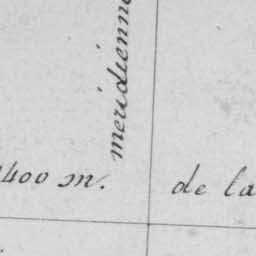 meridienne
400 m.
de la